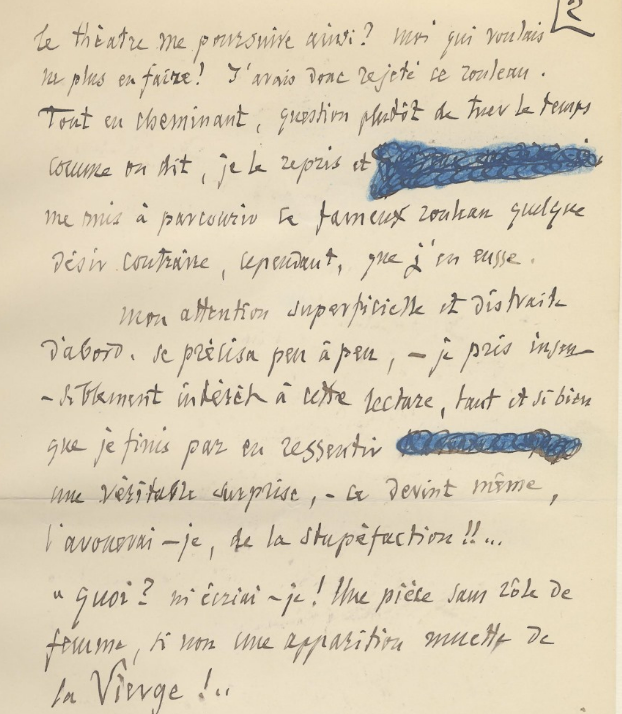 2
le théatre me poursuivre ainsi? moi qui voulais
ne plus en faire! J'avais donc rejeté ce rouleau.
Tout en cheminant, question plutôt de tuer le temps
comme on dit, je le repris et
me mis à parcourir ce fameux rouleau quelque
désir contraire, cependant, que j'en eusse.
Mon attention superficielle et distraite
d'abord. se précisa peu à peu, – je pris insen–
–siblement intérêt à cette lecture, tant et si bien
que je finis par en ressentir
une véritable surprise, – ce devint même,
l'avouerai–je, de la stupéfaction!!...
" quoi? m'écriai–je! Une pièce sans rôle de
femme, si non une apparition muette de
la Vierge!..